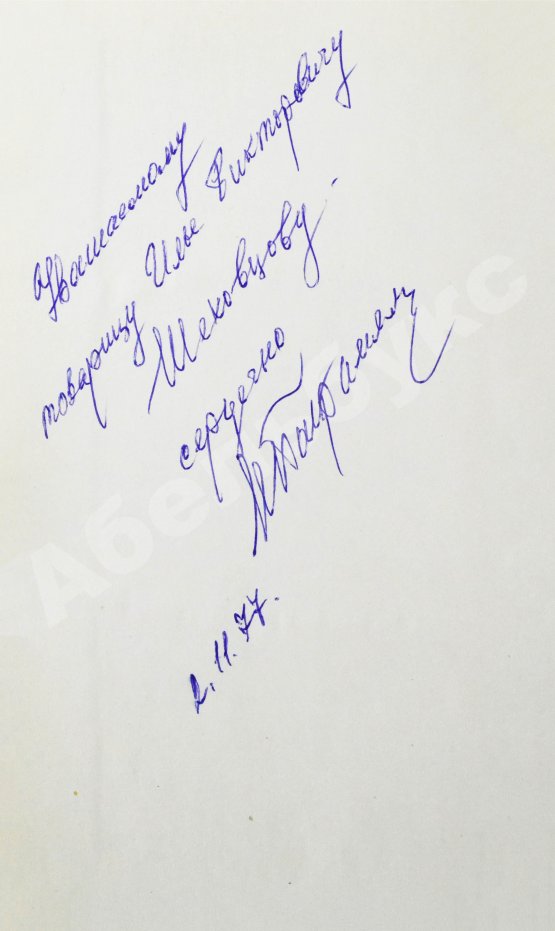 Уважаемому
товарищу Илье Викторовичу
Шеховцову
сердечно
И Баграмян
2.11.77.
Абельбукс